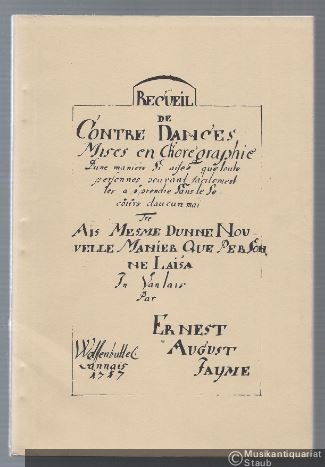 RECUEIL
DE
CONTRE DANCES
Mises en Choregraphie
Dune maniere Si aisée que toute
personnes pouvant facilement
les a prendre Sans le Se
cours daucun mai
Tre
AIS MESME DUNNE NOU
VELLE MANIER QUE PERSON
NE LAISA
In Vantais
Par
ERNEST
AUGUST
JAYME
Wolffenbuttel
Lannais
1717
© Musikantiquariat
Staub